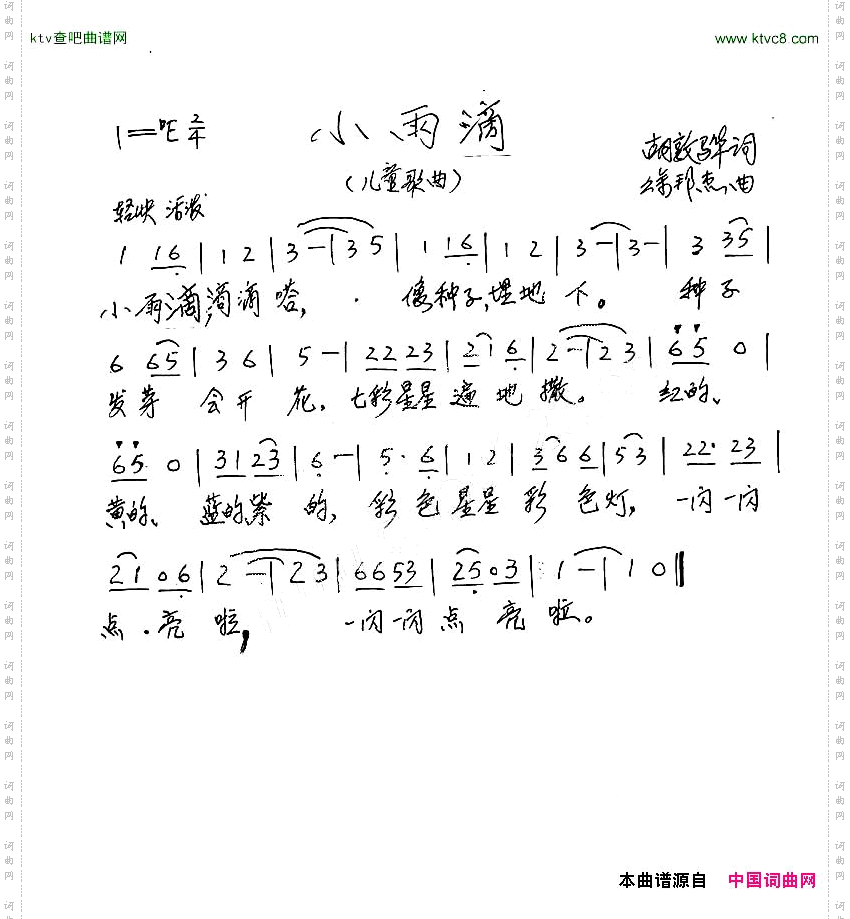 ktv查吧曲谱网 www.ktvc8.com
1=♭E 2/4 小雨滴
(儿童歌曲)
胡敦骅词
曲
轻快 活泼
1 16 | 1 2 | 3 — | 3 5 | 1 16 | 1 2 | 3 — | 3 — | 3 35 |
小雨滴滴滴嗒, 像种子,埋地下。 种子
6 65 | 3 6 | 5 — | 22 23 | 21 6 | 2 — | 2 3 | 65 0 |
发芽 会开花,七彩星星遍地撒。 红的、
65 0 | 31 23 | 6 — | 5· 6 | 1 2 | 36 6 | 53 | 22· 23 |
黄的、蓝的紫的,彩色星星彩色灯,一闪一闪
21 06 | 2 — | 2 3 | 6653 | 25 03 | 1 — | 1 0 ‖
点·亮啦, 一闪一闪点亮啦。
本曲谱源自 中国词曲网
词曲网